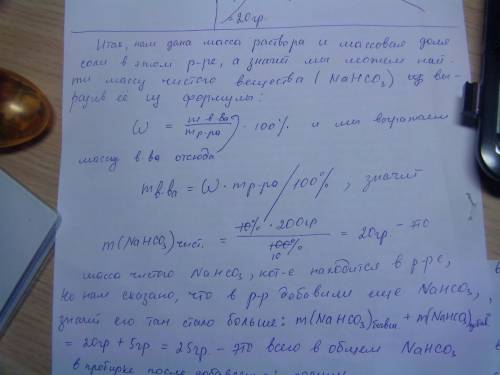 =20гр.
Итак, нам дана масса раствора и массовая доля
соли в этом р-ре, а значит мы можем най-
ти массу чистого вещества (NaHCO3) вы-
разив её из формулы:
ω = m в-ва / m р-ра · 100% и мы выражаем
массу в-ва отсюда
m в-ва = ω · m р-ра / 100%, значит
m(NaHCO3) чист. = 10% · 200гр / 100% = 20гр. - это
10
масса чистого NaHCO3, кот-е находится в р-ре,
Но нам сказано, что в р-р добавили еще NaHCO3,
значит его там стало больше: m(NaHCO3) + m(NaHCO3)
= 20гр + 5гр = 25гр - это всего в общем NaHCO3
в пробирке после